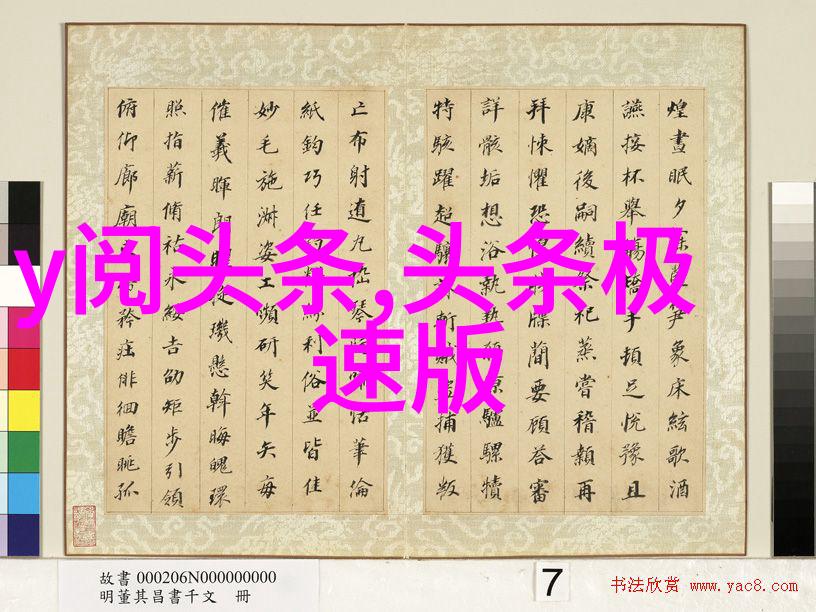 煌晝眠夕寐笋象床絃歌酒
讌接杯舉觴矯手頓足悅豫且
康嫡後嗣續祭祀蒸嘗稽顙再
拜悚懼恐牋牒簡要顧答審
詳骸垢想浴執熱願涼驢騾犢
特駭躍超驤斬賊盜捕獲叛
亡布射遼丸嵇琴阮嘯恬筆倫
紙鈞巧任釣紛利俗並皆佳
妙毛施淑姿工頻研笑年矢每
催羲暉朗曜璣懸斡晦魄環
照指薪脩祜永綏吉劭矩步引領
俯仰廊廟矜莊徘徊瞻眺孤
y阅头条,头条极
速版
故書 000206N000000000
明董其昌書千文 冊
7
书法欣赏 www.yac8.com